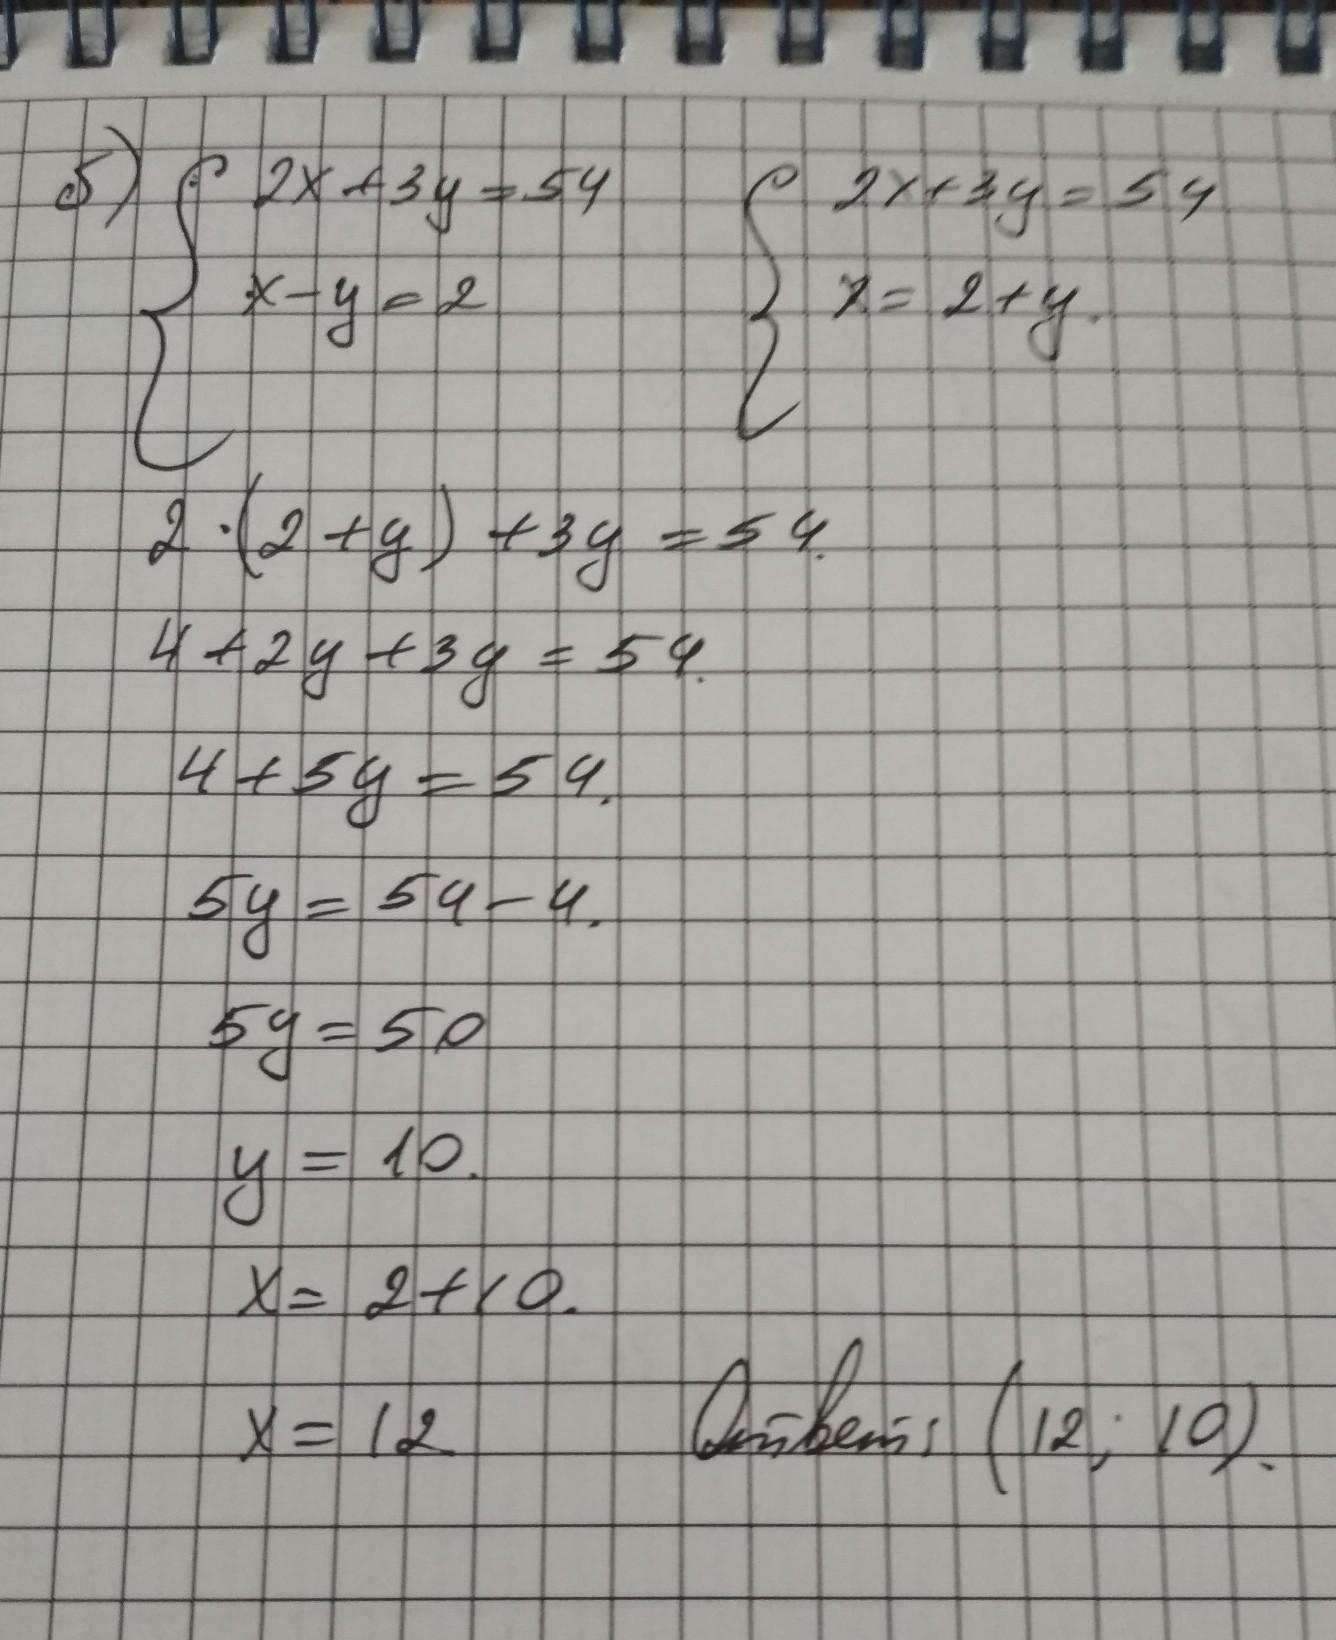 б) { 2x+3y=54 { 2x+3y=54
x-y=2 x=2+y.
2·(2+y)+3y=54.
4+2y+3y=54.
4+5y=54.
5y=54-4.
5y=50
y=10.
x=2+10.
x=12 Ответ: (12; 10).